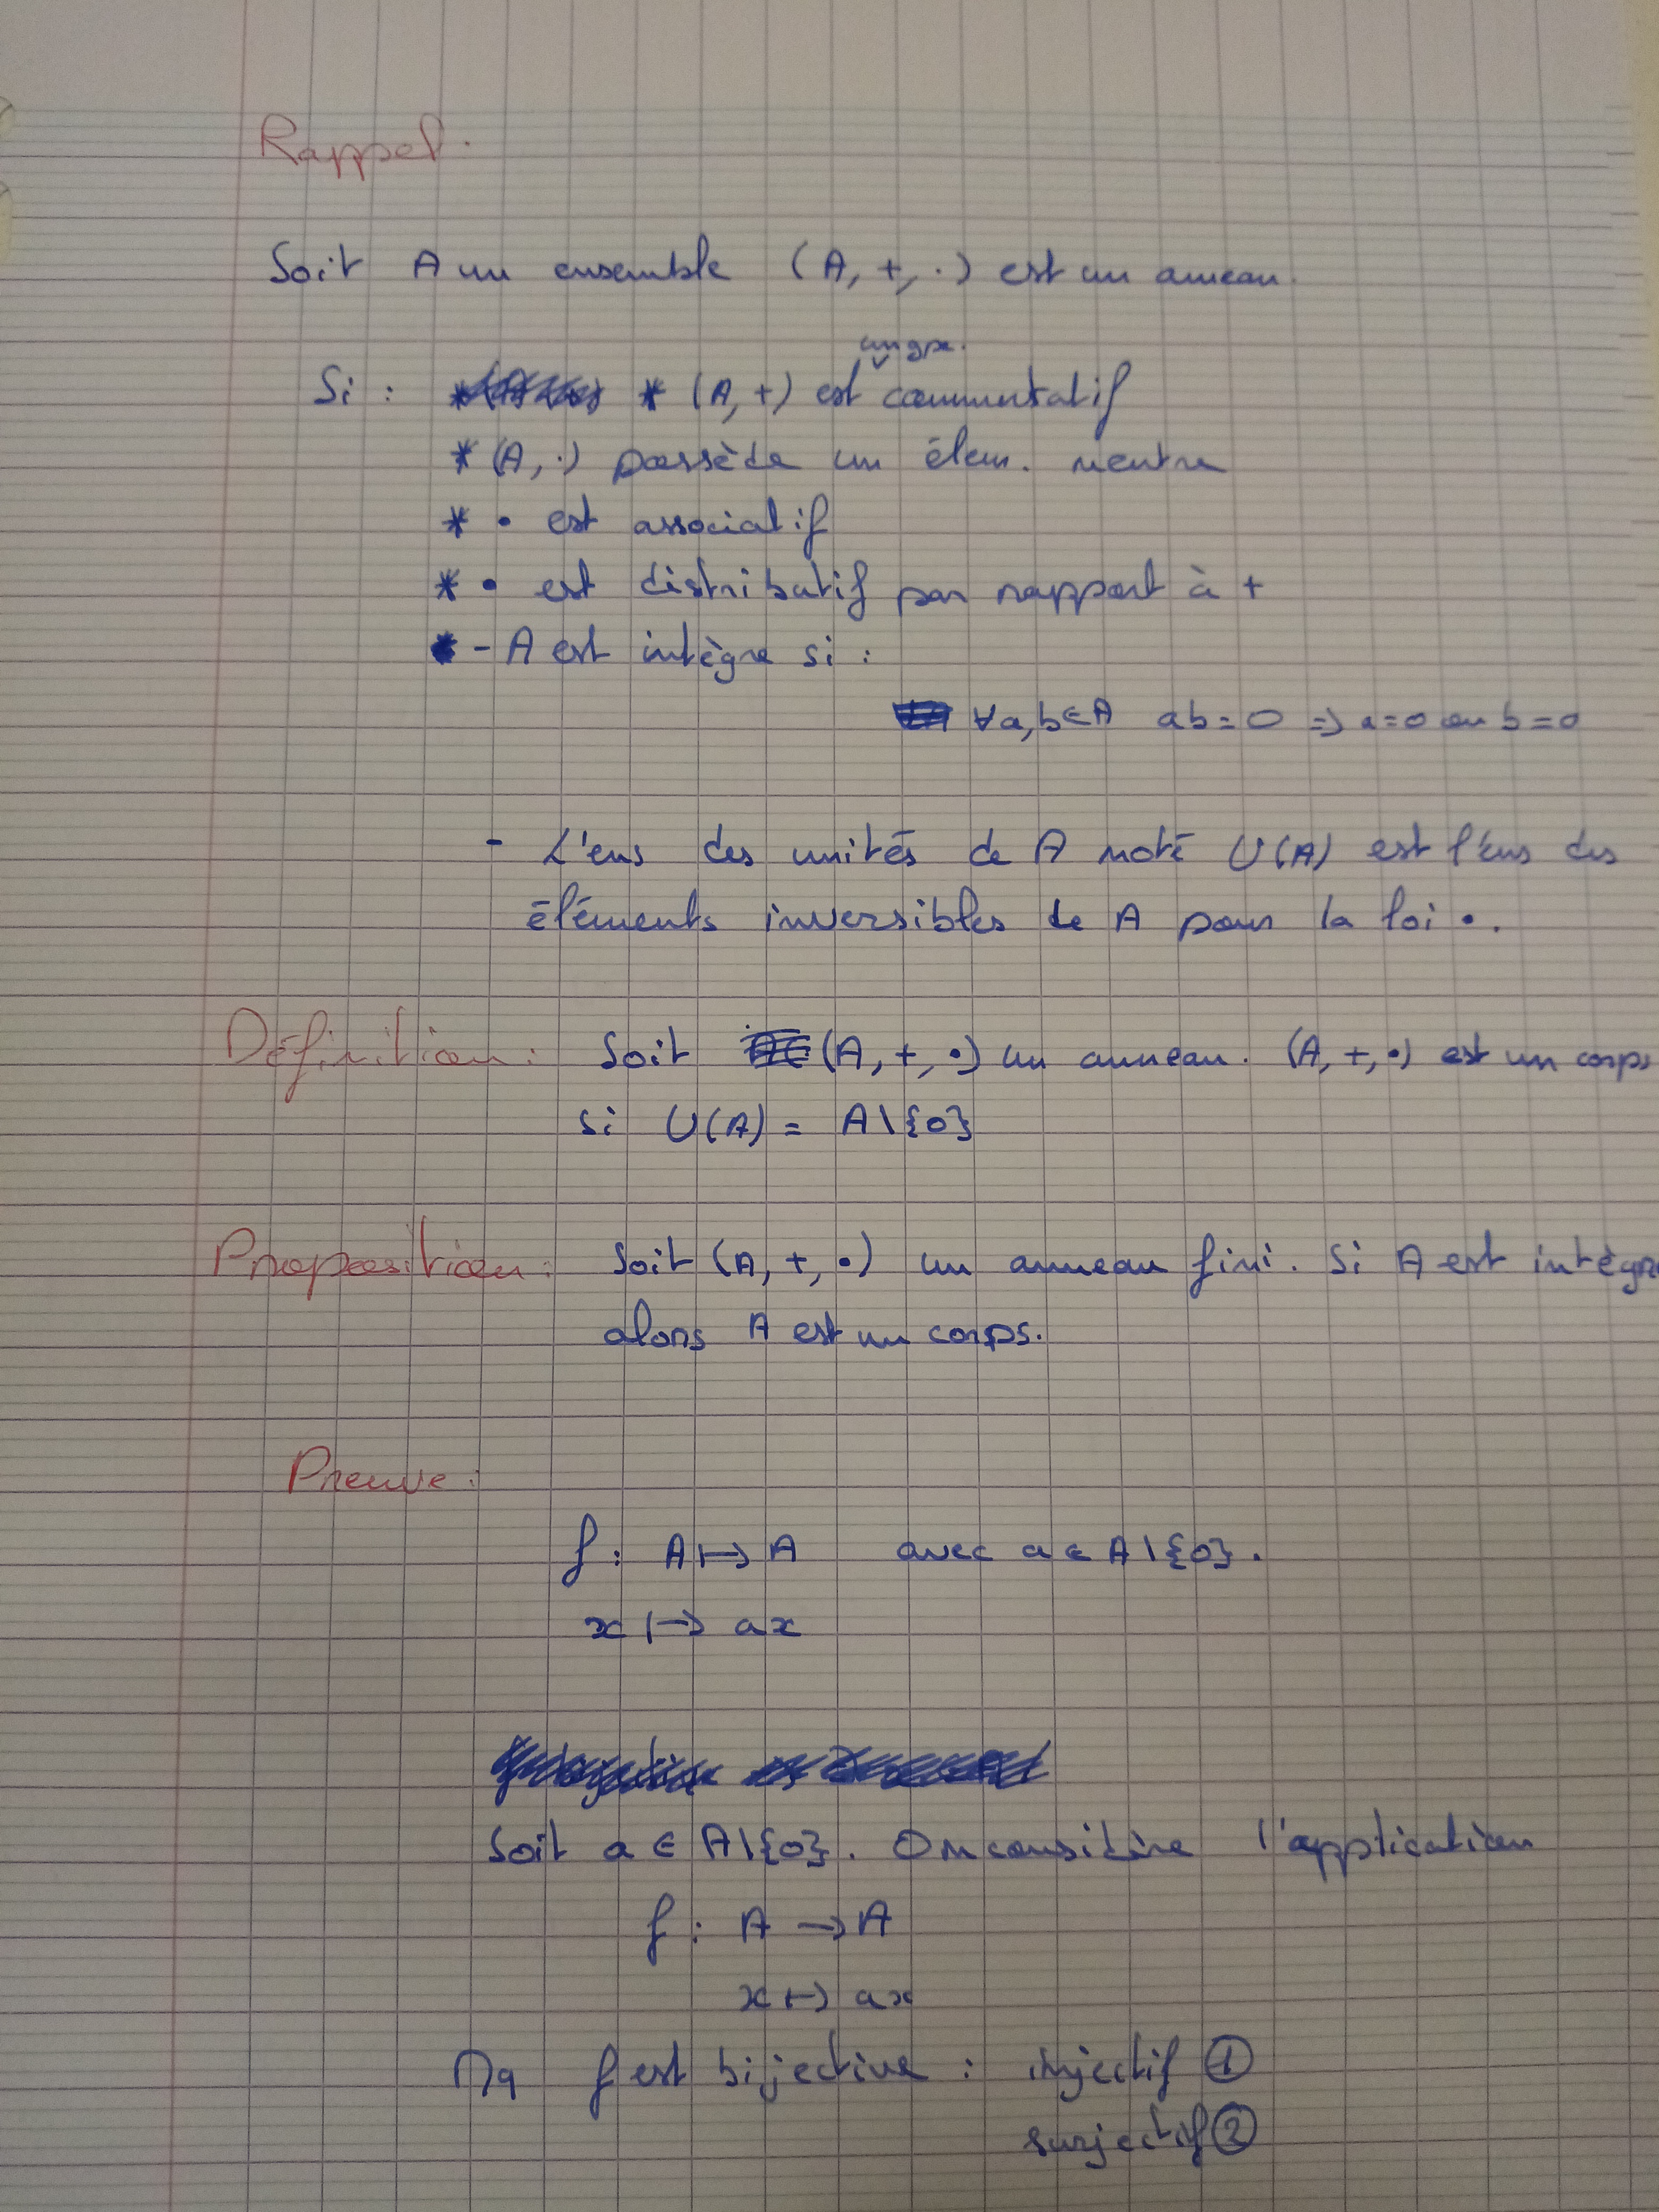 Rappel.
Soit A un ensemble (A, +, .) est un anneau.
un gpe.
Si : * (A, +) est commutatif
* (A, .) possède un élem. neutre
* • est associatif
* • est distributif par rapport à +
- A est intègre si :
∀a, b ∈ A ab = 0 => a = 0 ou b = 0
- L'ens des unités de A noté U(A) est l'ens des
éléments inversibles de A pour la loi •.
Définition : Soit (A, +, •) un anneau. (A, +, •) est un corps
si U(A) = A\{0}
Proposition : Soit (A, +, •) un anneau fini. Si A est intègre
alors A est un corps.
Preuve :
f : A ↦ A avec a ∈ A\{0}.
x ↦ ax
Soit a ∈ A\{0}. On considère l'application
f : A → A
x ↦ ax
Mq f est bijective : injectif ①
surjectif ②